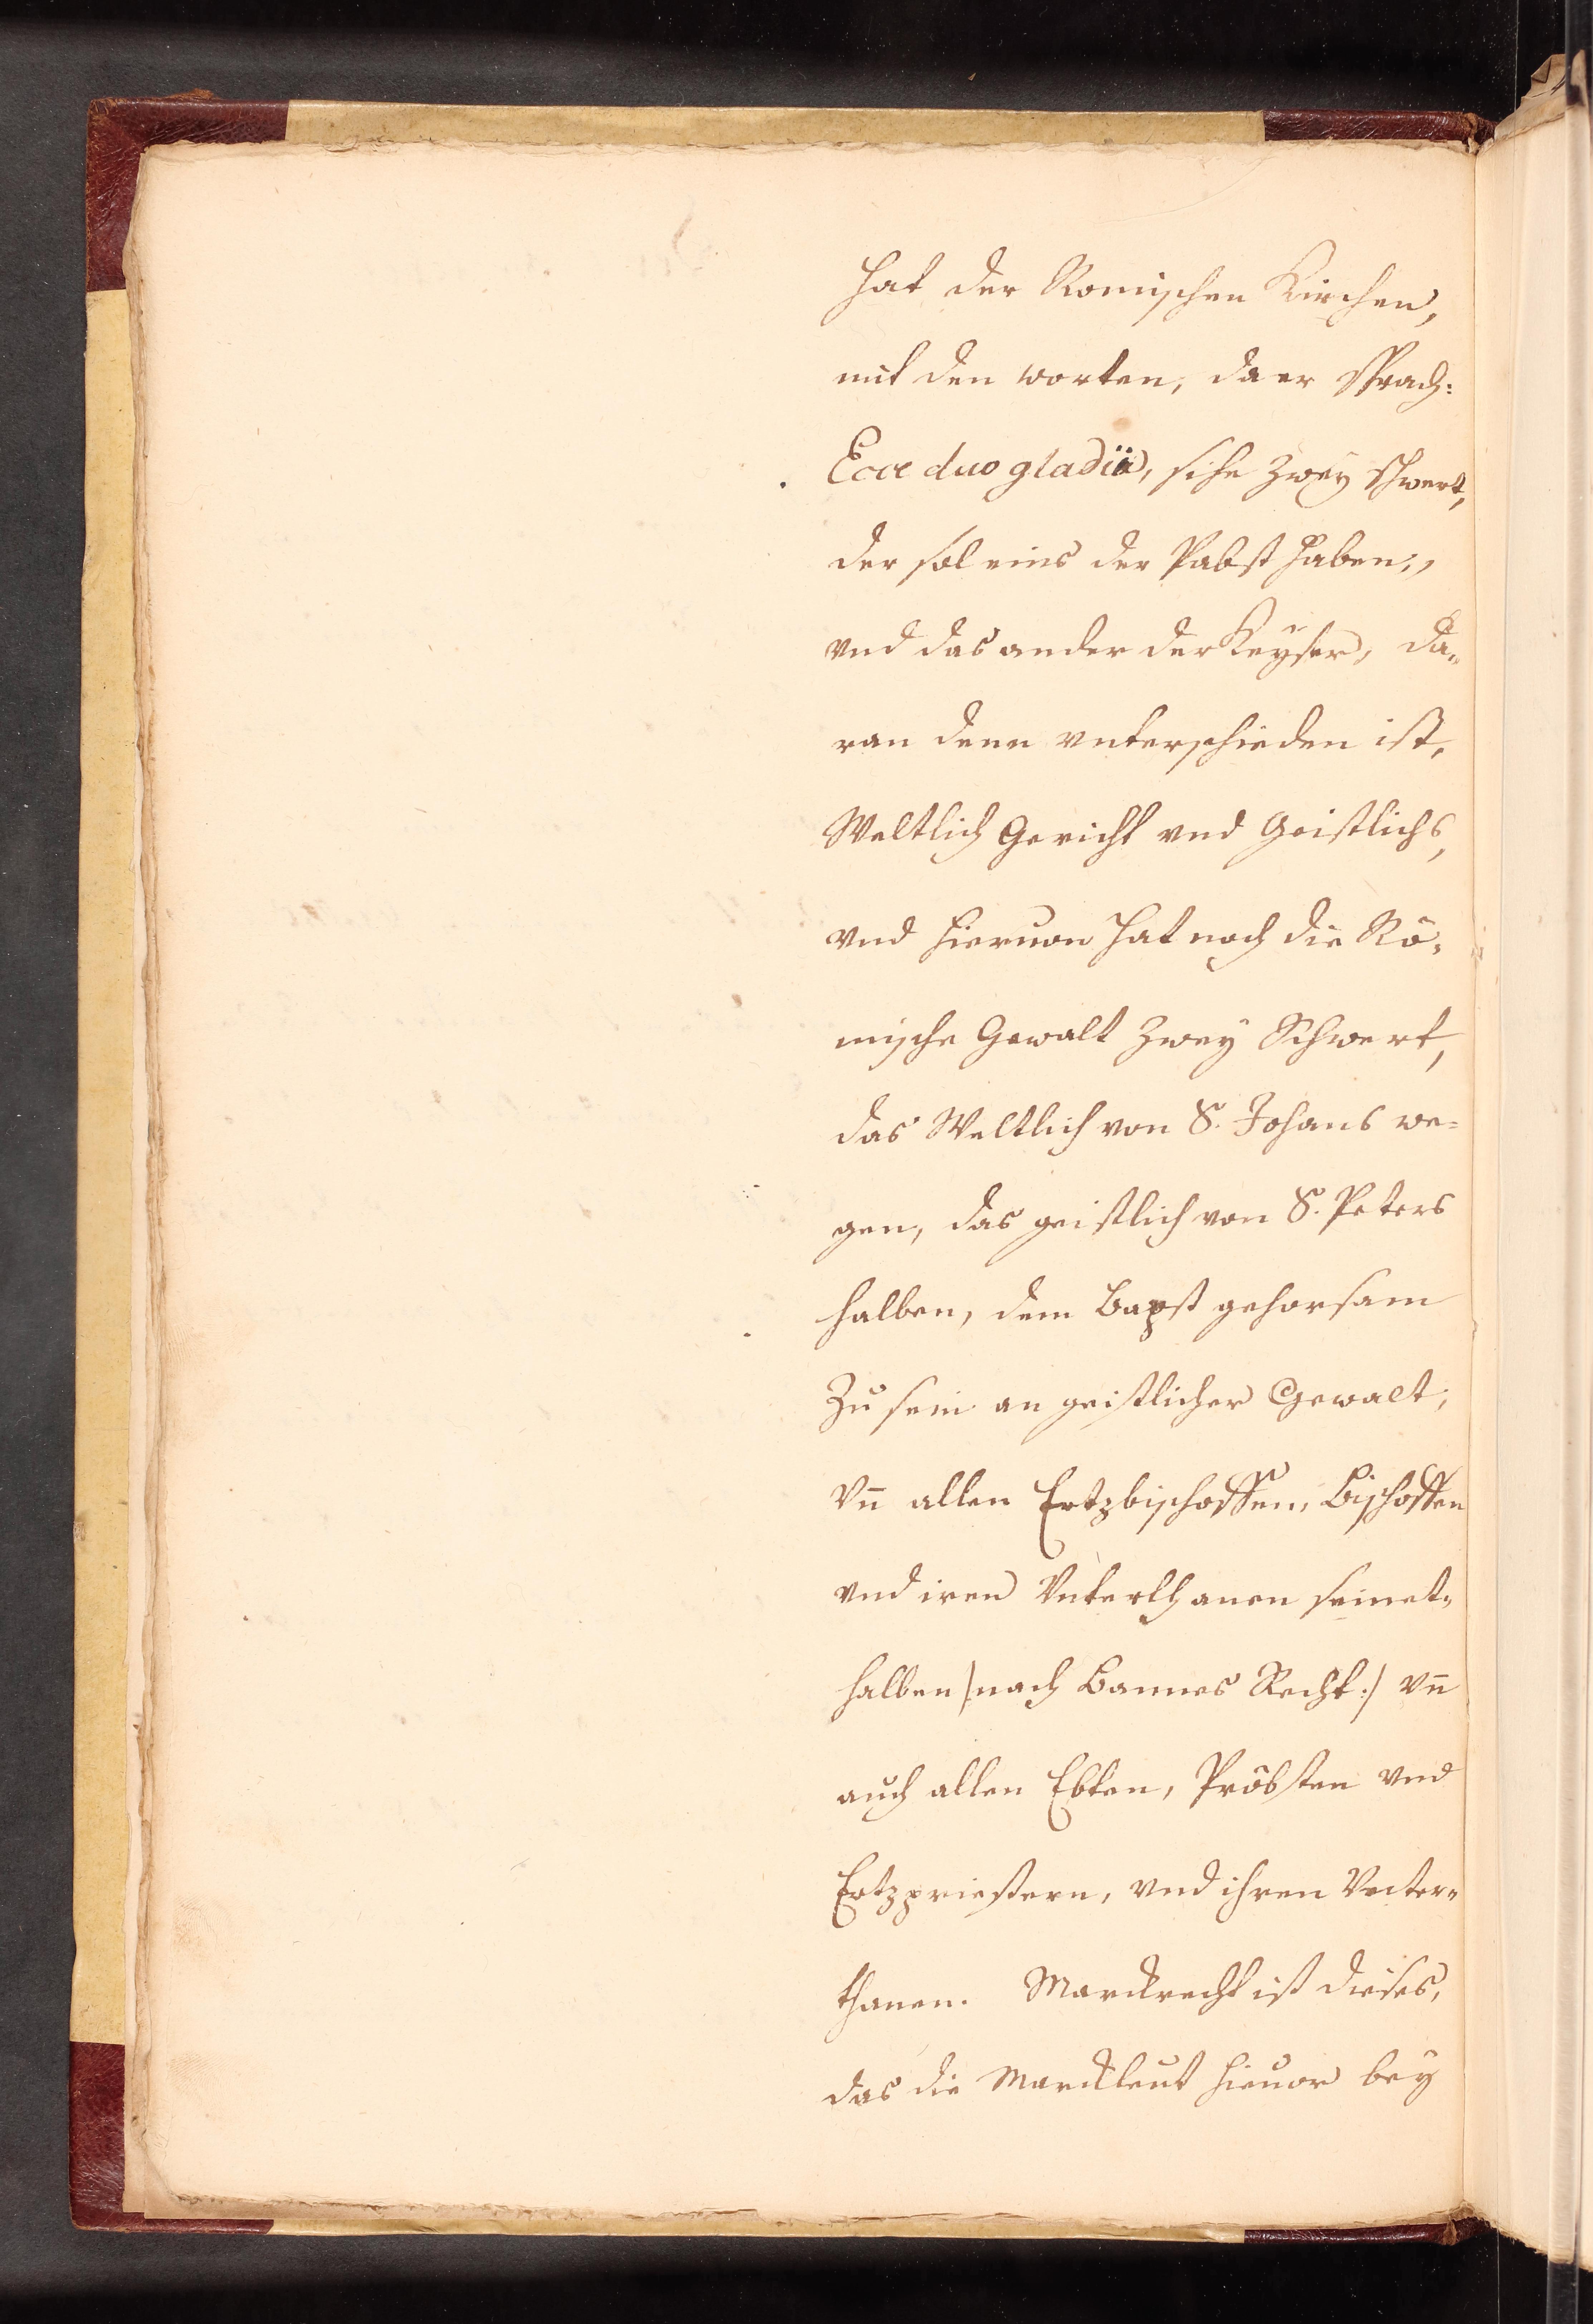 hat der Romischen Kirchen,
mit den worten, da er sprach:
Ecce duo gladii, sihe zwey schwert,
der sol eins der Pabst haben,
vnd das ander der Keyser, da„
ran denn vnterschieden ist,
Weltlich Gericht vnd Geistlichs,
vnd hieruon hat noch die Rö„
mische Gewalt zwey Schwert,
das Weltlich von S. Johans we=
gen, das geistlich von S. Peters
halben, dem Bapst gehorsam
zu sein an geistlicher Gewalt,
vn̄ allen Ertzbischoffen, Bischoffen
vnd iren Vnterthanen seinet„
halben |: nach Bannes Recht :| vn̄
auch allen Ebten, Pröbsten vnd
Ertzpriestern, vnd ihren Vnter„
thanen. Marckrecht ist dieses,
das die Marckleut hieuor bey